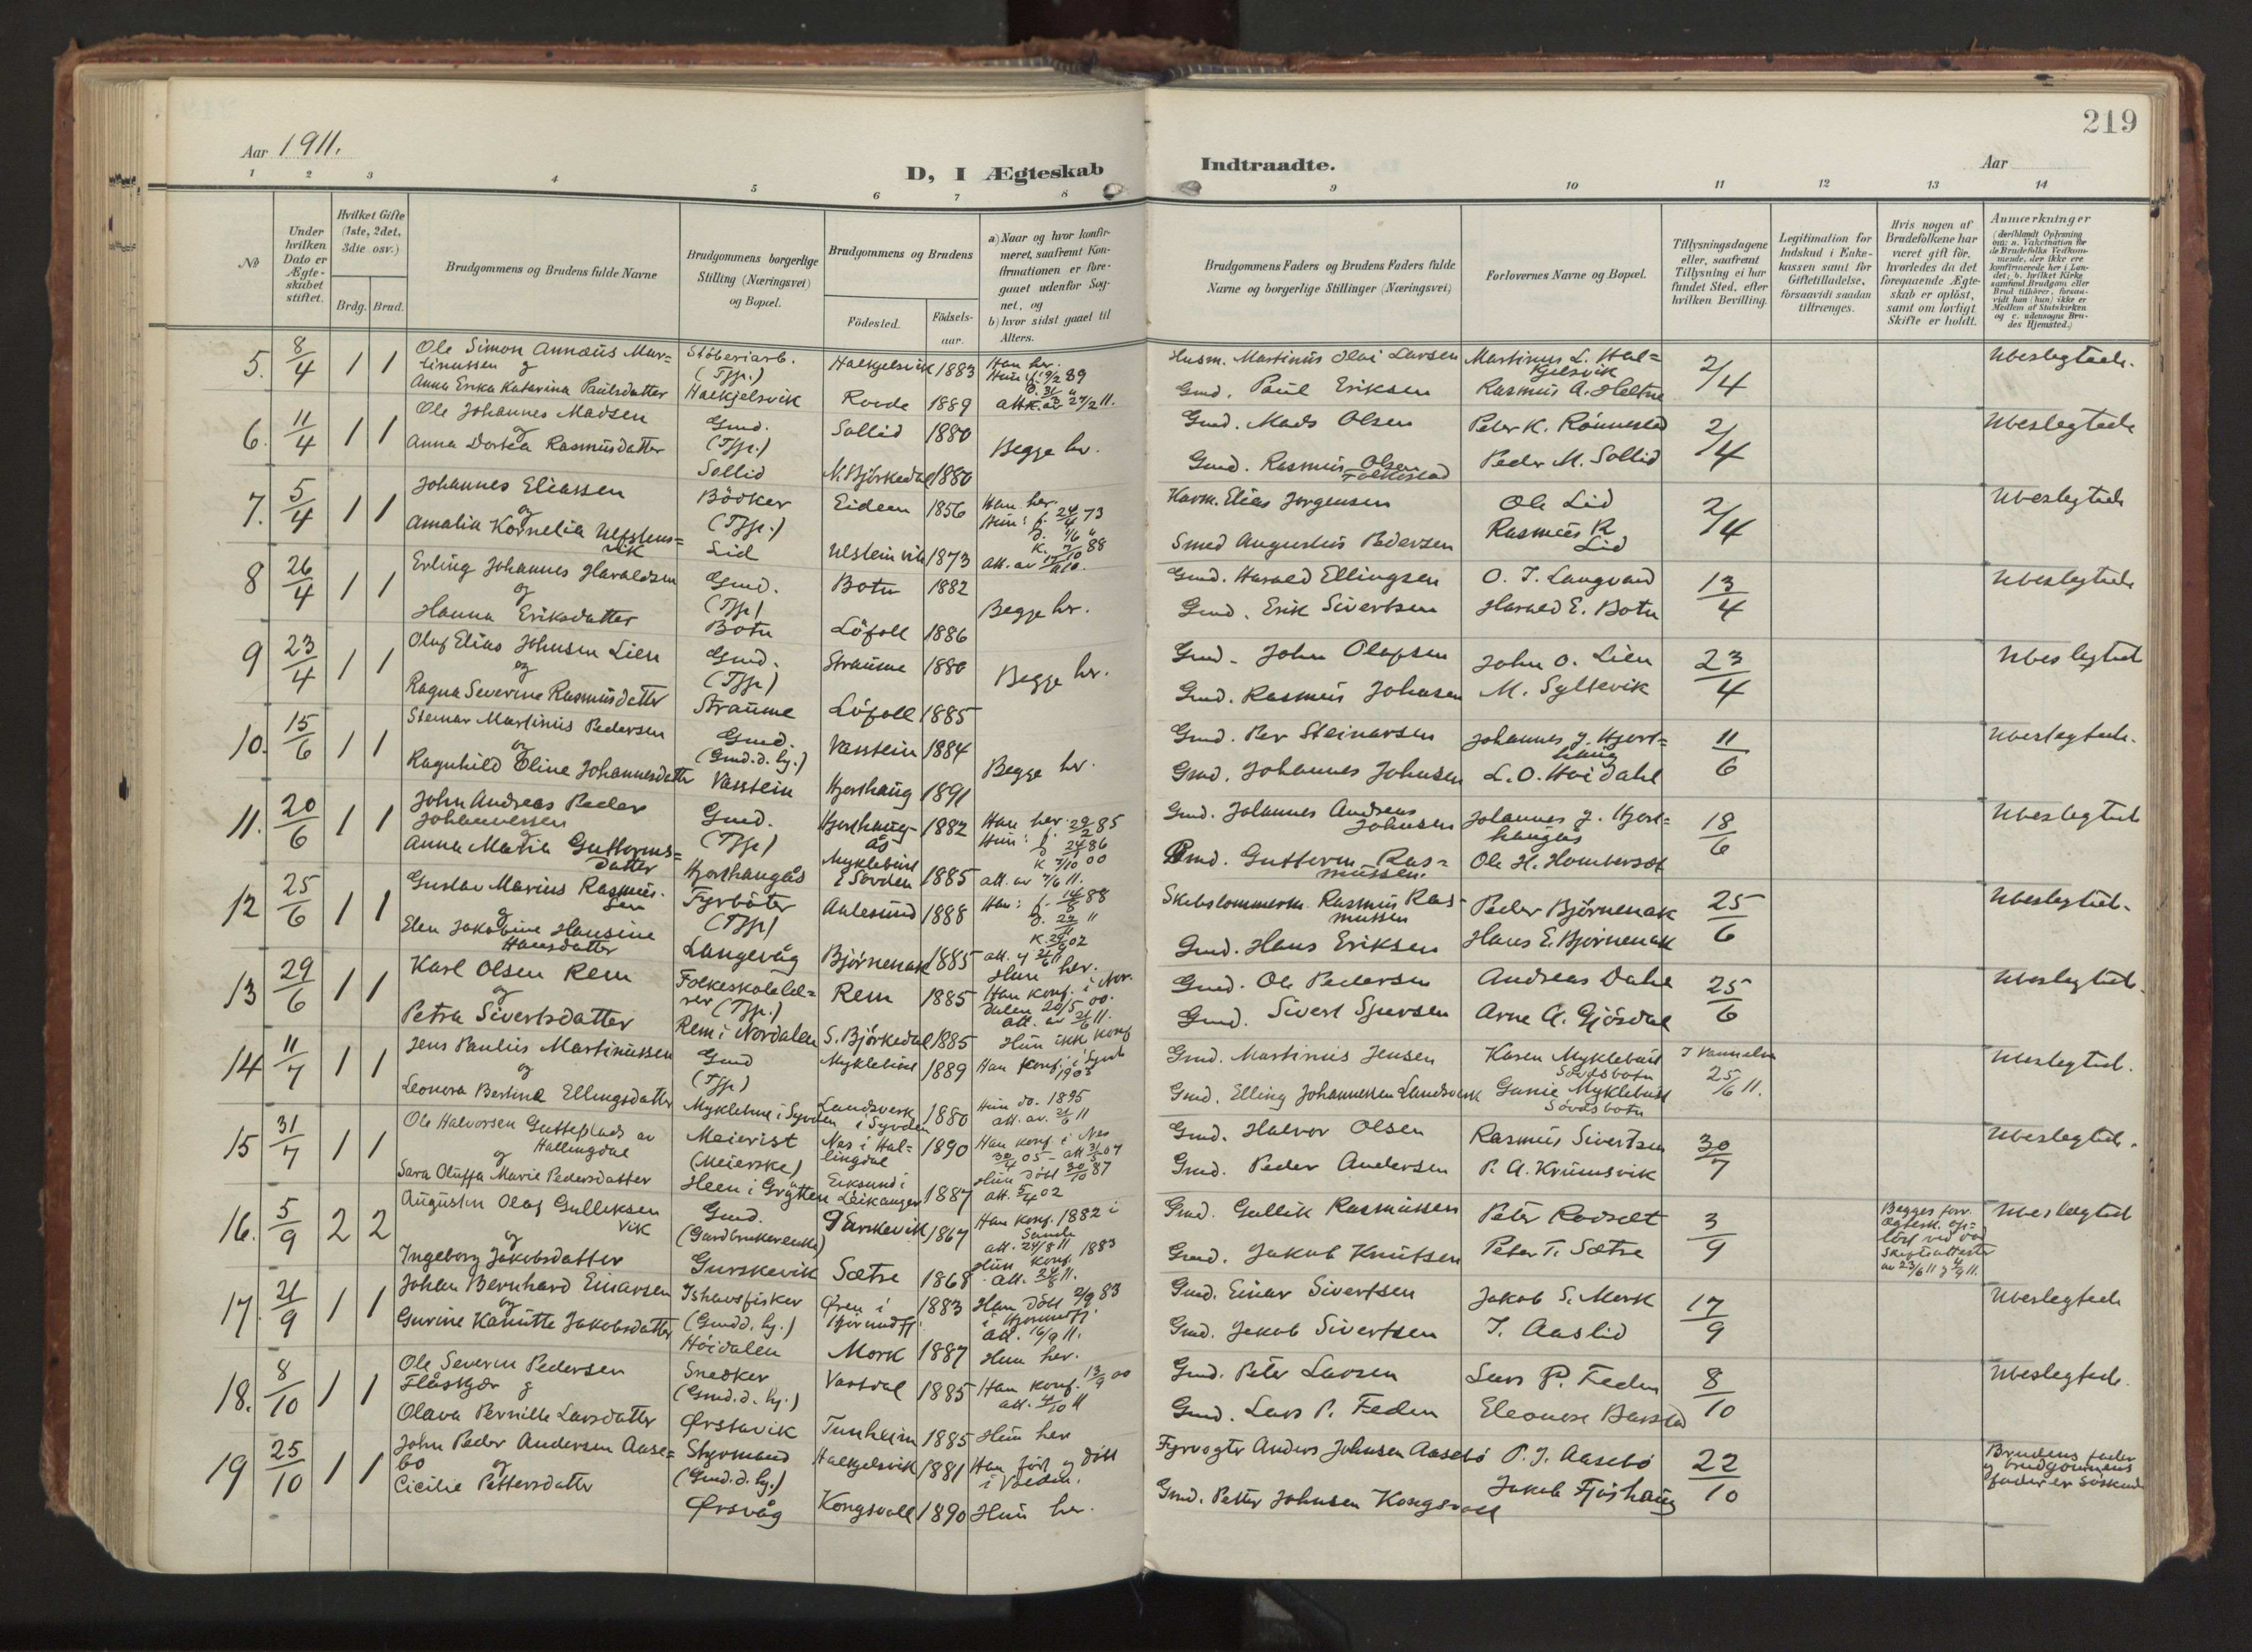 219
Aar 1911.
D, I Ægteskab Indtraadte.
Aar
1 2 3 4 5 6 7 8 9 10 11 12 13 14
No
Under hvilken Dato er Ægteskabet stiftet.
Hvilket Gifte (1ste, 2det, 3die osv.)
Brdg. Brud.
Brudgommens og Brudens fulde Navne
Brudgommens borgerlige Stilling (Næringsvei) og Bopæl.
Brudgommens og Brudens
Fødested.
Fødselsaar.
a) Naar og hvor konfirmeret, saafremt Konfirmationen er foregaaet udenfor Sognet, og
b) hvor sidst gaaet til Alters.
Brudgommens Faders og Brudens Faders fulde Navne og borgerlige Stillinger (Næringsvei)
Forlovernes Navne og Bopæl.
Tillysningsdagene eller, saafremt Tillysning ei har fundet Sted, efter hvilken Bevilling.
Legitimation for Indskud i Enkekassen samt for Giftetilladelse, forsaavidt saadan tiltrænges.
Hvis nogen af Brudefolkene har været gift før, hvorledes da det foregaaende Ægteskab er opløst, samt om lovligt Skifte er holdt.
Anmærkninger
(deriblandt Oplysning om: a. Vakcination for de Brudefolks Vedkommende, der ikke ere konfirmerede her i Landet; b. hvilket Kirkesamfund Brudgom eller Brud tilhører, forsaavidt han (hun) ikke er Medlem af Statskirken og c. udensogns Brudes Hjemsted.)
5. 8/4 1 1 Ole Simon Annæus Mar=
tinussen og
Anna Erika Katarina Paulsdatter
Støberiarb.
(Tjp.)
Halkjelsvik
Halkjelsvik 1883
Rovde 1889
Han her.
Husm. Martinus Olai Larsen
Gmd. Paul Eriksen
Martinus L. Hal=
kjelsvik
Rasmus A. Heltne
2/4
Ubeslegtede.
6. 11/4 1 1 Ole Johannes Madsen
og
Anna Dortea Rasmusdatter
Gmd.
(Tjp.)
Sollid
Sollid 1880
N. Bjørkedal 1880
Begge her.
Gmd. Mads Olsen
Gmd. Rasmus Olsen
Folkestad
Peter K. Rønnestad
Peder M. Sollid
2/4
Ubeslegtede
7. 5/4 1 1 Johannes Eliassen
og
Amalia Kornelia Ulfstens=
vik
Bødker
(Tjp.)
Lid
Eidem 1856
Ulsteinvik 1873
Han her.
Harm. Elias Jørgensen
Smed Augustus Pedersen
Ole Lid
Rasmus R
Lid
2/4
Ubeslegtede
8 26/4 1 1 Erling Johannes Haraldsen
og
Hanna Eriksdatter
Gmd.
(Tjp)
Botn
Botn 1882
Løfoll 1886
Begge her.
Gmd. Harald Ellingsen
Gmd. Erik Sivertsen
O. J. Langvand
Harald E. Botn
13/4
Ubeslegtede
9 23/4 1 1 Oluf Elias Johnsen Lien
og
Ragna Severine Rasmusdatter
Gmd.
(Tjp)
Straume
Straume 1880
Løfoll 1885
Begge her.
Gmd. John Olafsen
Gmd. Rasmus Johnsen
John O. Lien
M. Syltevik
23/4
Ubeslegtet
10. 15/6 1 1 Steinar Martinus Pedersen
og
Ragnhild Oline Johannesdatter
Gmd.
(Gmd. d. hj.)
Vasstein
Vasstein 1884
Hjorthaug 1891
Begge her.
Gmd. Per Steinarsen
Gmd. Johannes Johnsen
Johannes J. Hjort=
haug
L. O. Høidahl
11/6
Ubeslegtede.
11. 20/6 1 1 John Andreas Peder
Johannessen
og
Anna Maria Guttorms=
datter
Gmd.
(Tjp)
Hjorthaugås
Hjorthaug-
ås 1882
Myklebust
i Søvden 1885
Gmd. Johannes Andreas
Johnsen
Gmd. Guttorm Ras=
mussen.
Johannes J. Hjort=
haugås
Ole H. Hombersæt
18/6
Ubeslegtet
12 25/6 1 1 Gustav Marius Rasmus-
sen
og
Elen Jakobine Hansine
Hansdatter
Fyrbøter
(Tjp)
Langevåg
Aalesund 1888
Bjørnenak 1885
Hun her.
Skibstømmerm. Rasmus Ras-
mussen
Gmd. Hans Eriksen
Peder Bjørnenak
Hans E. Bjørnenak
25/6
Ubeslegtet.
13 29/6 1 1 Karl Olsen Rem
og
Petra Sivertsdatter
Folkeskolelæ=
rer (Tjp.)
Rem i Nordalen
Rem 1885
S. Bjørkedal 1885
Han konf. i Nor.
dalen 20/5 00.
att. av 21/6 11.
Gmd. Ole Pedersen
Gmd. Sivert Sjursen
Andreas Dahl
Arne A. Gjøsdal
25/6
Ubeslegtet.
14 11/7 1 1 Jens Paulus Martinussen
og
Leonora Bertine Ellingsdatter
Gmd
(Tjp)
Myklebust i Syvden
Myklebust 1889
Landsverk
i Syvden 1880
Hun ikke konf
Hun do. 1895
att. av. 21/6 11
Gmd. Martinus Jensen
Gmd. Elling Johannessen Landsverk
Karen Myklebust
Søvdsbotn
Gunie Myklebust
Søvdsbotn
25/6 11.
Ubeslegtet.
15 31/7 1 1 Ole Halvorsen Gutteplads av
Hallingdal
og
Sara Oluffa Marie Pedersdatter
Meierist
(Meierske)
Heen i Grytten
Nes i Hal=
lingdal 1890
Eiksund i
Leikanger 1887
Han konf. i Nes
30/4 05 - att 31/5 07
Hun døbt 30/10 87
att. 5/4 02
Gmd. Halvor Olsen
Gmd. Peder Andersen
Rasmus Sivertsen
P. A. Krumsvik
30/7
Ubeslegtede.
16. 5/9 2 2 Augustin Olaf Gulliksen
Vik
og
Ingeborg Jakobsdatter
Gmd.
(Gardbrukerenke)
Gurskevik
Gurskevik 1867
Sætre 1868
Han konf. 1882 i
Sande
att. 24/8 11
Hun konf. 1883
att. 24/8 11.
Gmd. Gullik Rasmussen
Gmd. Jakob Knutsen
Peter Rødsæt
Peter T. Sætre
3/9
Begges forr.
ægtesk. op=
løst ved død
Skifteattester
av 23/6 11 og 4/9 11.
Ubeslægtet
17. 21/9 1 1 Johan Bernhard Einarsen
og
Gurine Kanutte Jakobsdatter
Ishavsfisker
(Gmdd. hj.)
Høidalen
Øren i
Hjørundfj. 1883
Mork 1887
Han døbt 2/9 83
i Hjørundfj.
att. 16/9 11.
Hun her.
Gmd. Einar Sivertsen
Gmd. Jakob Sivertsen
Jakob S. Mork
J. Aaslid
17/9
Ubeslegtede
18. 8/10 1 1 Ole Severin Pedersen
Flåskjær og
Olava Pernille Larsdatter
Snedker
(Gmd. d. hj.)
Ørstavik
Vartdal 1885
Tunheim 1885
Han konf. 13/9 00
att. 4/10 11
Hun her
Gmd. Peter Larsen
Gmd. Lars P. Feden
Lars P. Feden
Eleonore Barstad
8/10
Ubeslegtede.
19 25/10 1 1 John Peder Andersen Aase=
bø og
Cicilie Pettersdatter
Styrmand
(Gmd. d. hj.)
Ørsvåg
Halkjelsvik 1881
Kongsvoll 1890
Han født og døbt
i Volden.
Hun her.
Fyrvogter Anders Johnsen Aasebø
Gmd. Petter Johnsen Kongsvoll
P. J. Aasebø
Jakob Fjøshaug
22/10
Brudens fader
og brudgommens
fader er søskende